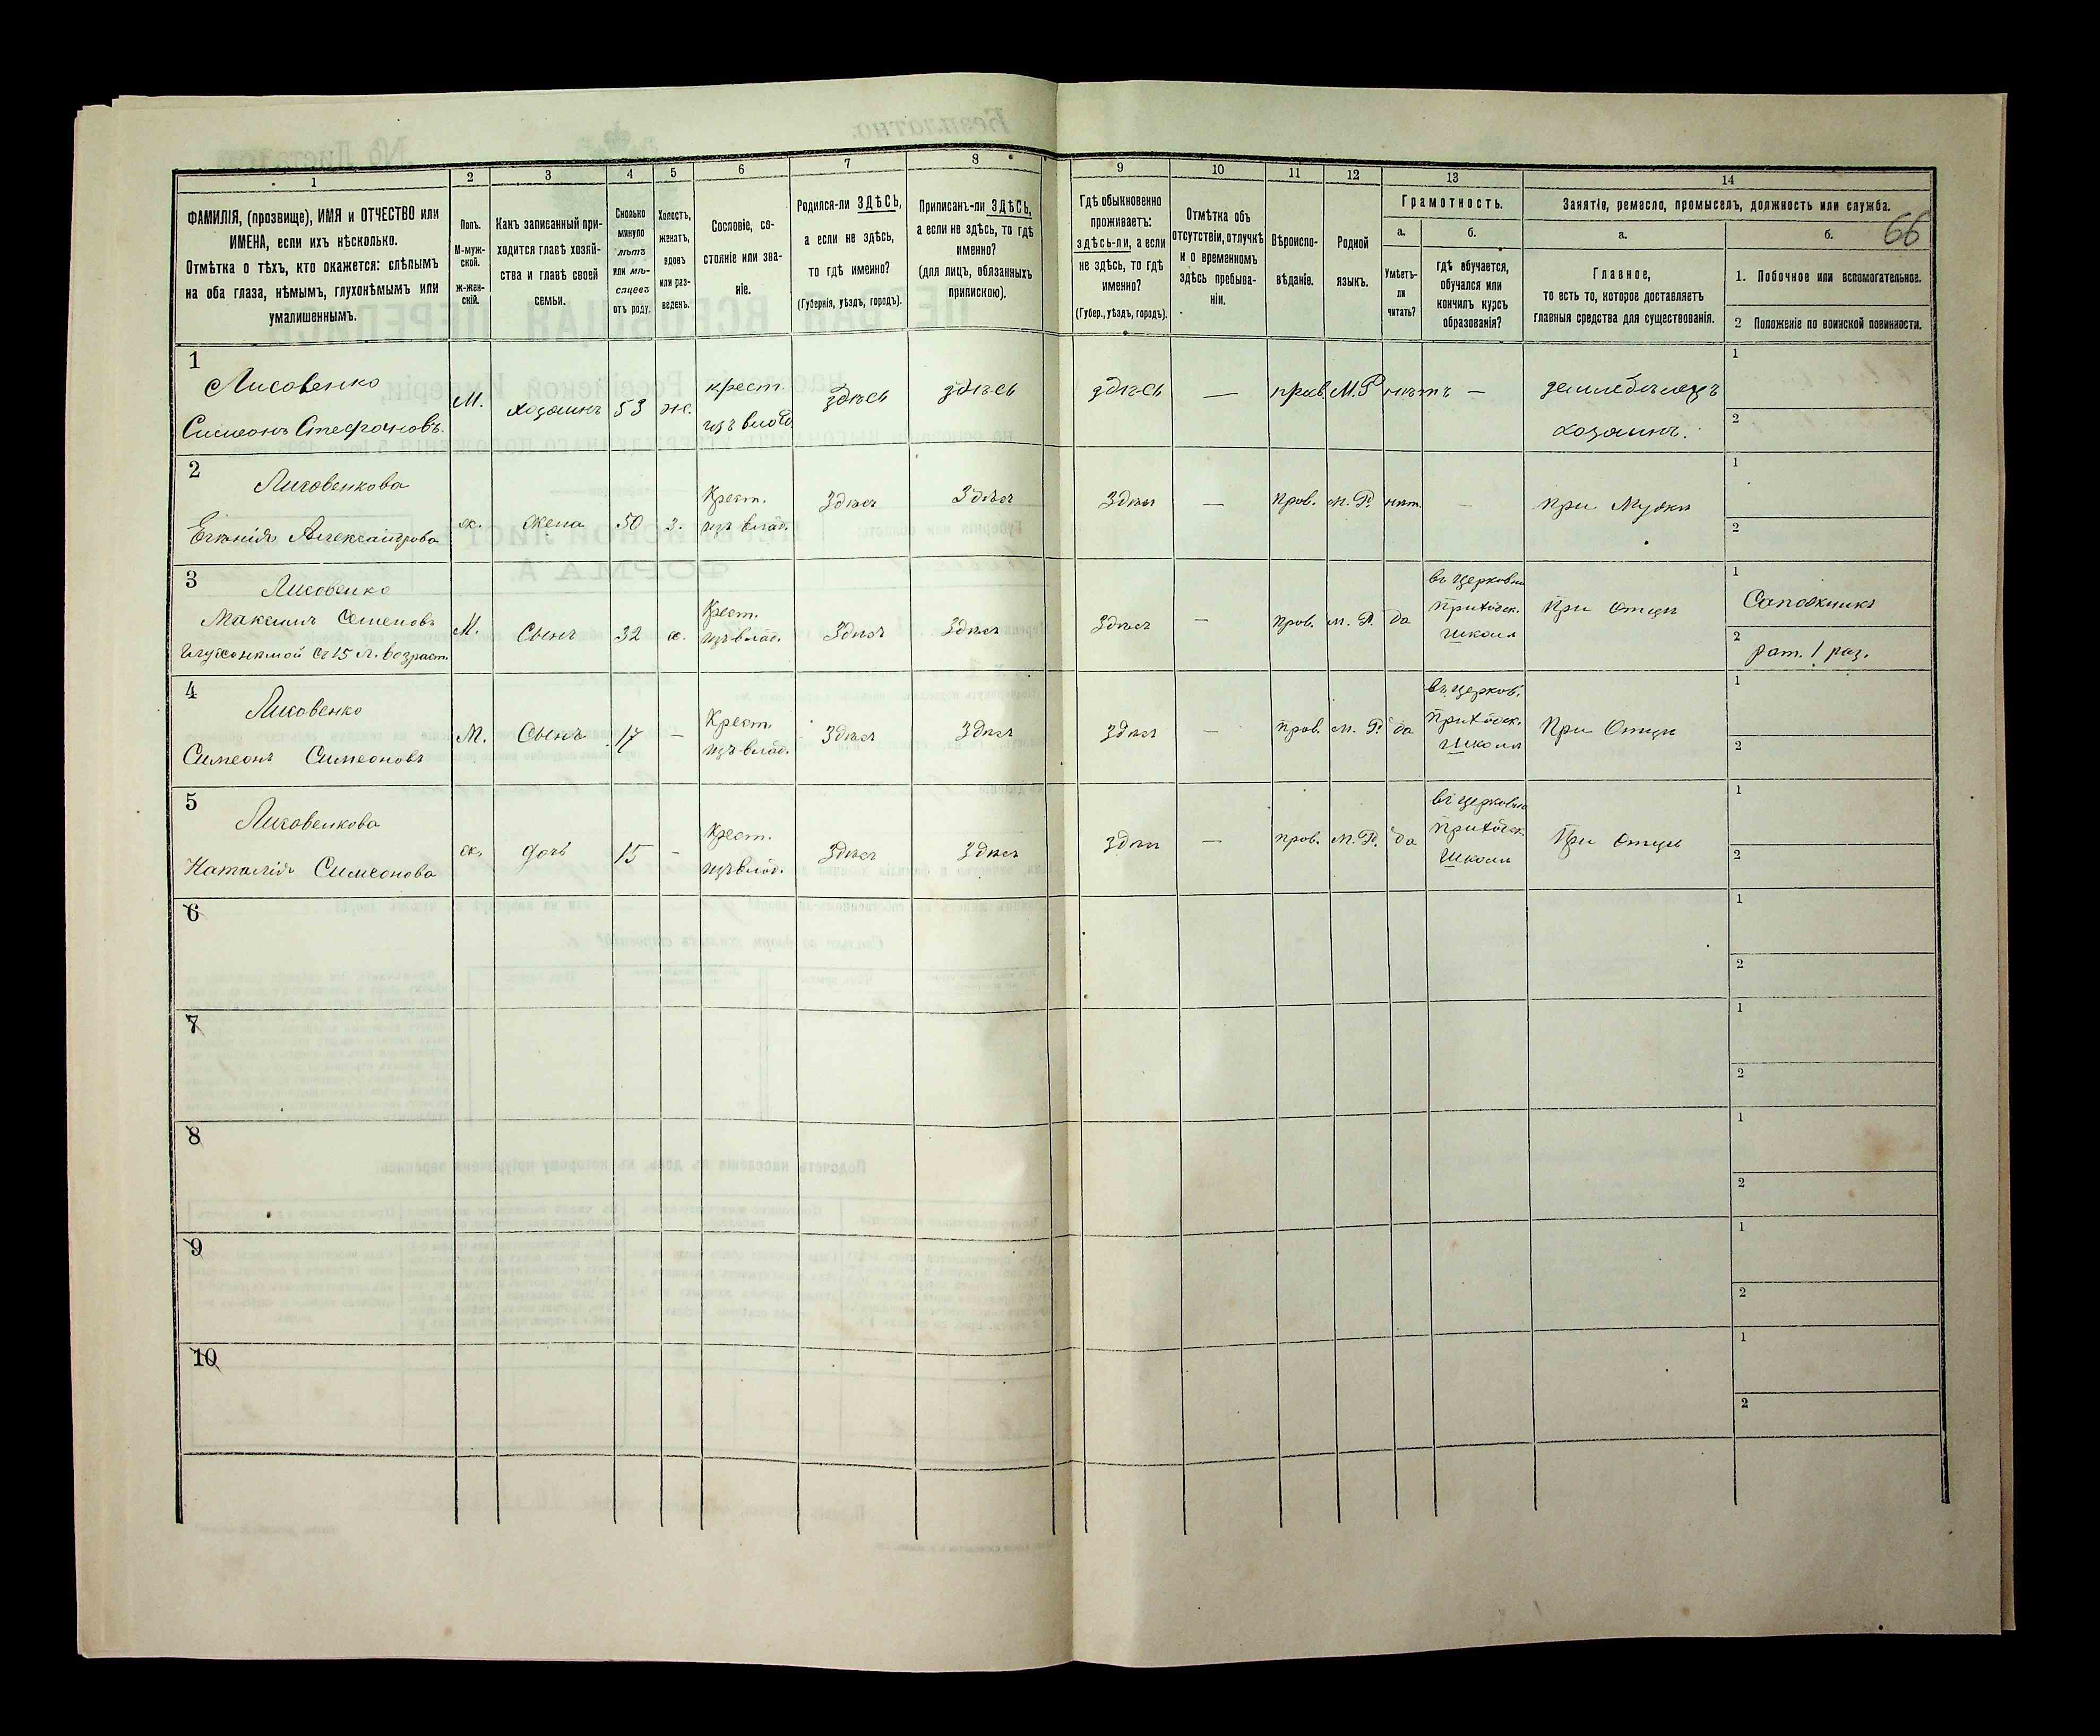 66
1
2
3
4
5
6
7
8
9
10
11
12
13
14
ФАМИЛІЯ, (прозвище), ИМЯ и ОТЧЕСТВО или
ИМЕНА, если ихъ нѣсколько.
Отмѣтка о тѣхъ, кто окажется: слѣпымъ
на оба глаза, нѣмымъ, глухонѣмымъ или
умалишеннымъ.
Полъ.
М-муж-
ской.
Ж-жен-
скій.
Какъ записанный при-
ходится главѣ хозяй-
ства и главѣ своей
семьи.
Сколько
минуло
лѣтъ
или мѣ-
сяцевъ
отъ роду.
Холостъ,
женатъ,
вдовъ
или раз-
веденъ.
Сословіе, со-
стояніе или зва-
ніе.
Родился-ли ЗДѢСЬ,
а если не здѣсь,
то гдѣ именно?
(Губернія, уѣздъ, городъ).
Приписанъ-ли ЗДѢСЬ,
а если не здѣсь, то гдѣ
именно?
(для лицъ, обязанныхъ
припискою).
Гдѣ обыкновенно
проживаетъ:
здѣсь-ли, а если
не здѣсь, то гдѣ
именно?
(Губер., уѣздъ, городъ).
Отмѣтка объ
отсутствіи, отлучкѣ
и о временномъ
здѣсь пребыва-
ніи.
Вѣроиспо-
вѣданіе.
Родной
языкъ.
Грамотность.
а.
Умѣетъ-
ли
читать?
б.
гдѣ обучается,
обучался или
кончилъ курсъ
образованія?
Занятіе, ремесло, промыселъ, должность или служба.
а.
Главное,
то есть то, которое доставляетъ
главныя средства для существованія.
б.
1. Побочное или вспомогательное.
2 Положеніе по воинской повинности.
1
Лисовенко
Симеонъ Стефановъ.
М.
хозяинъ
53
ж.
крест.
изъ влад
здѣсь
здѣсь
здѣсь
—
прав.
М.Р
нѣтъ
—
земледѣлецъ
хозяинъ.
1
2
2
Лисовенкова
Александрова
ж.
жена
50
з.
Крест.
изъ влад.
Здѣсь
Здѣсь
Здѣсь
—
прав.
м. Р.
нѣт.
—
при Мужѣ
1
2
3
Лисовенко
Максимъ Семеновъ
глухонѣмой съ 15 л. возраст.
М.
Сынъ
32
х.
Крест.
изъ влад.
Здѣсь
Здѣсь
Здѣсь
—
прав.
м. Р.
да
въ церковно
приходск.
школѣ
При Отцѣ
1
Сапожникъ
2
рат. 1 раз.
4
Лисовенко
Симеонъ Симеоновъ
М.
Сынъ
17
—
Крест.
изъ влад.
Здѣсь
Здѣсь
Здѣсь
—
прав.
м. Р.
да
въ церков.
приходск.
школѣ
При Отцѣ
1
2
5
Лисовенкова
Наталія Симеонова
ж.
дочь
15
—
Крест.
изъ влад.
Здѣсь
Здѣсь
Здѣсь
—
прав.
м. Р.
да
въ церковно
приходск.
школѣ
При Отцѣ
1
2
6
1
2
7
1
2
8
1
2
9
1
2
10
1
2